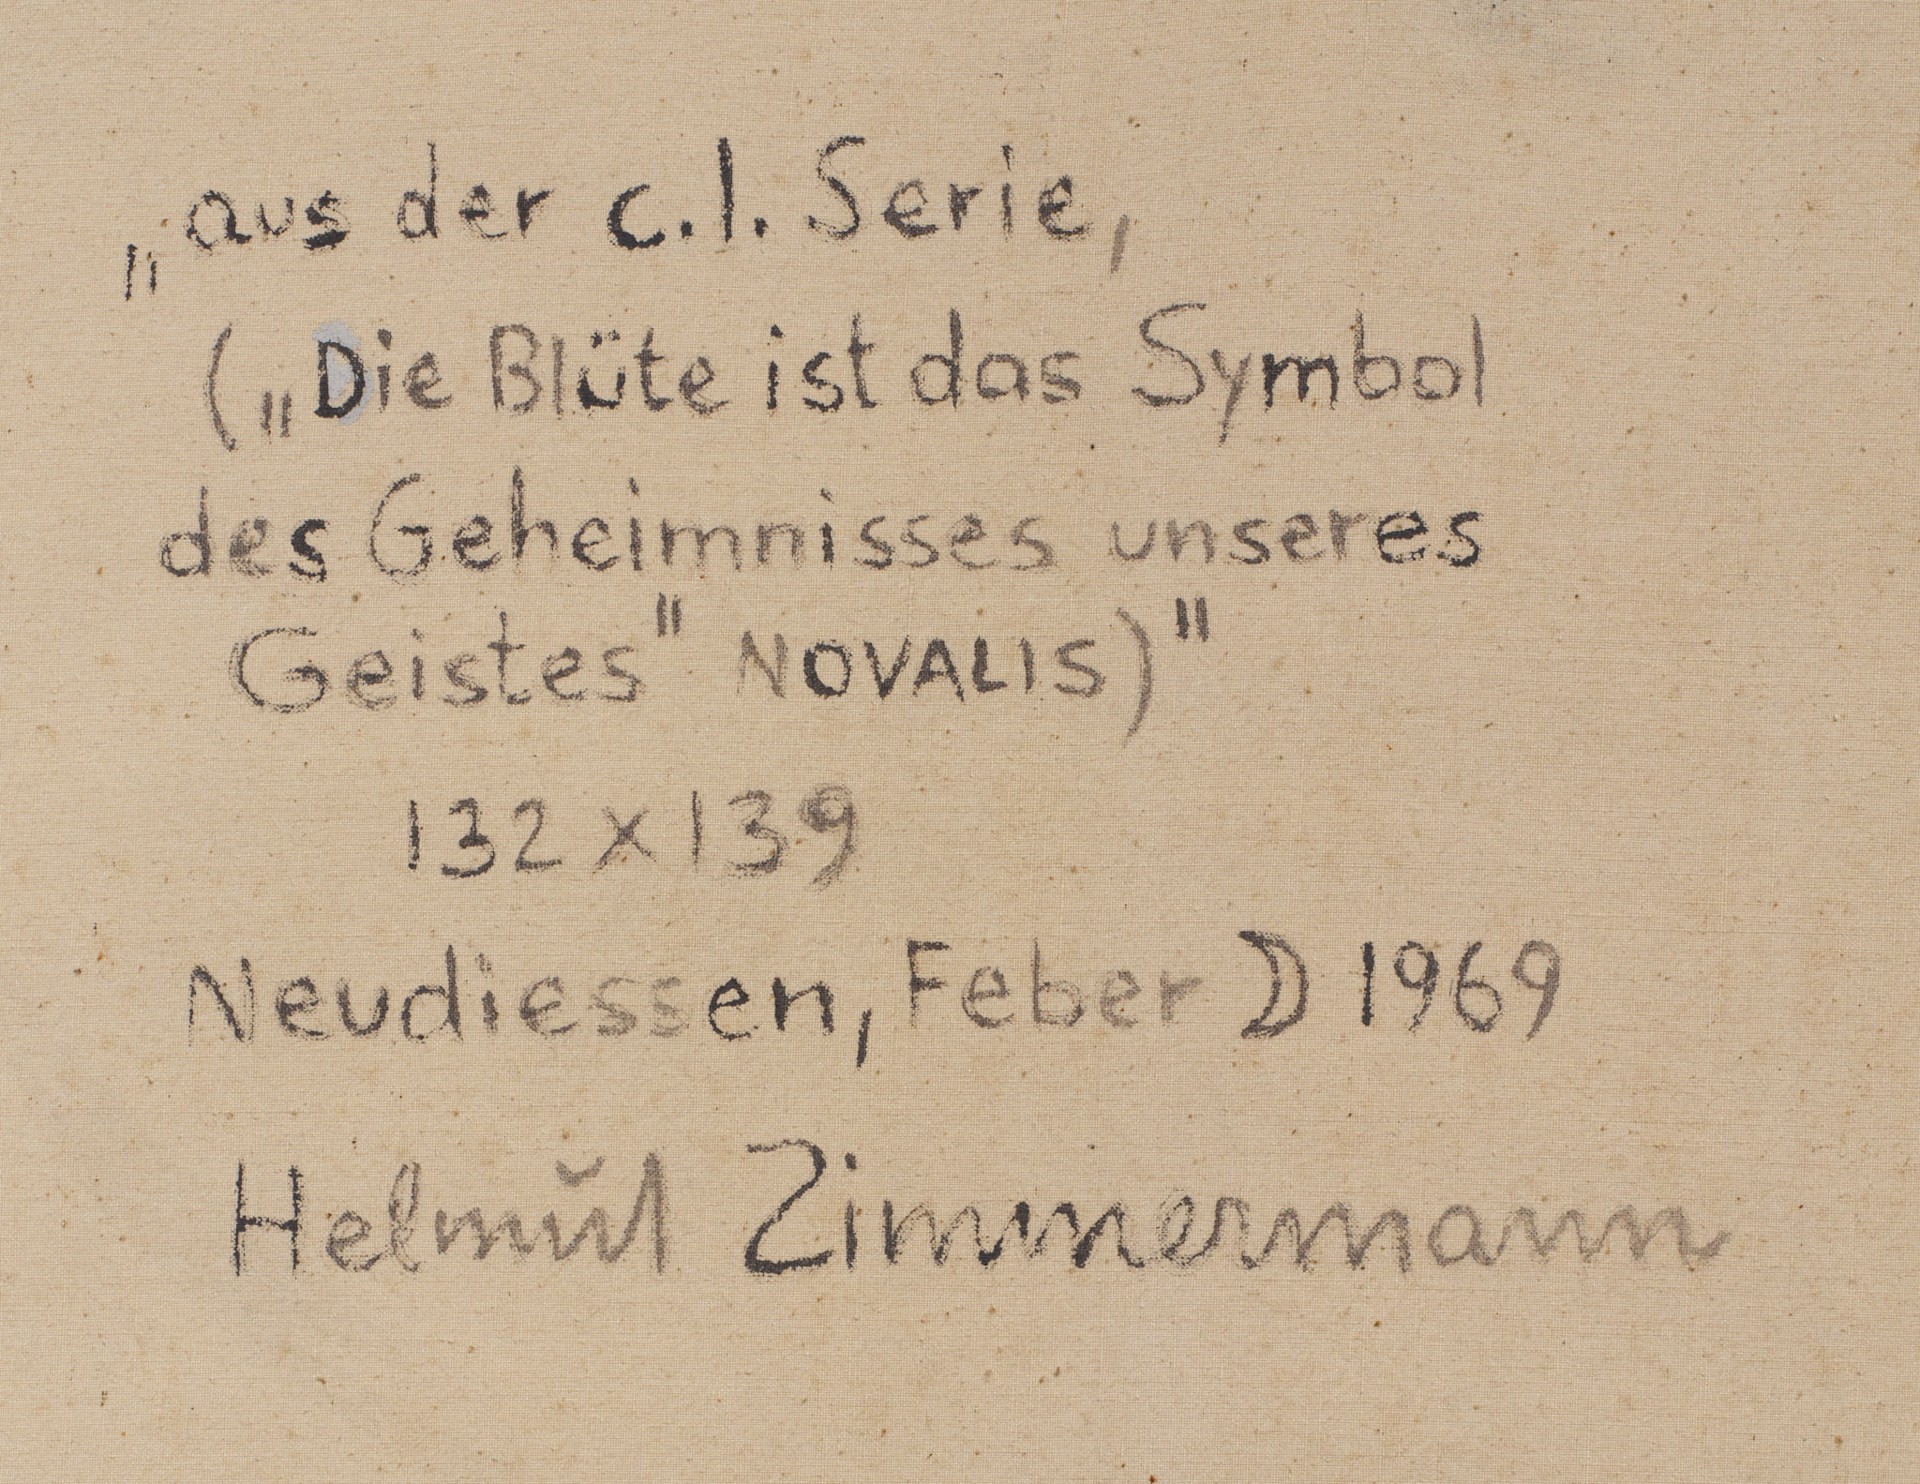 „aus der c.l. Serie,
(„Die Blüte ist das Symbol
des Geheimnisses unseres
Geistes" NOVALIS)"
132 x 139
Neudiessen, Feber D 1969
Helmut Zimmermann